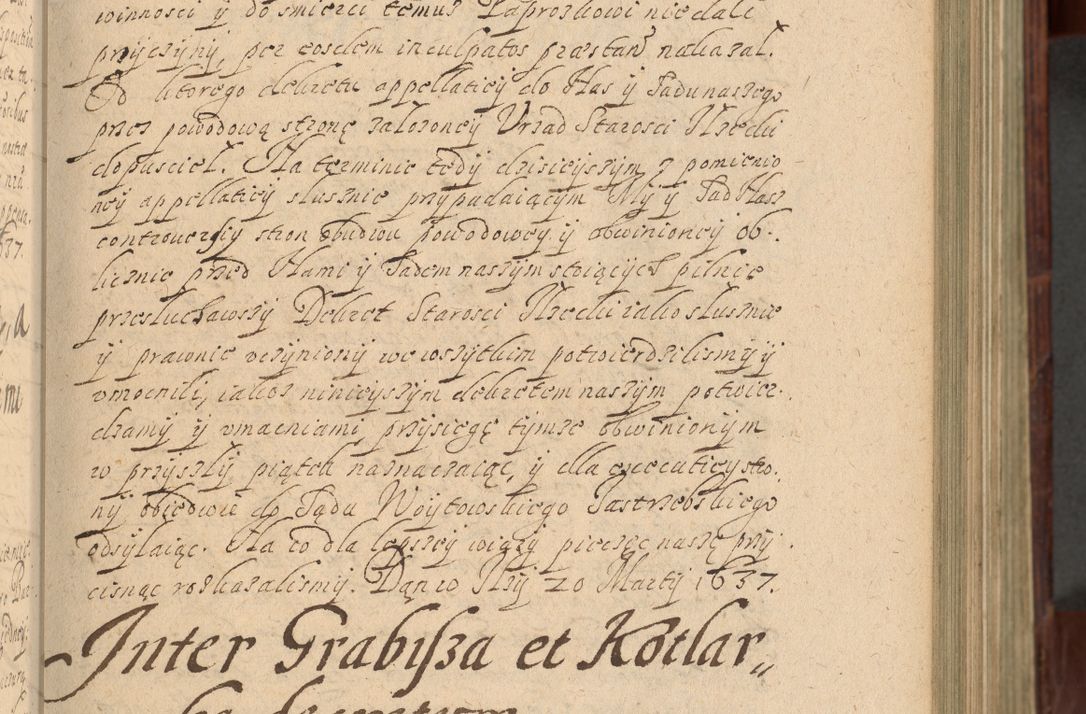 winnosci ÿ do smierci temuż Zaproszkowi nie dali
przÿczÿnÿ, per eosdem inculpatos præstari nakazał.
Od ktorego dekretu appellatieÿ do Nas ÿ Sadu naszego
przez powodową stronę założoneÿ Urząd Starosci Ilzecki
dopusciel. Na terminie tedÿ dzisieÿszÿm z pomienio
neÿ appellatieÿ słusznie przÿpadaiącÿm Mÿ ÿ Sąd Nasz
controuersiÿ stron obudwu powodoweÿ ÿ obwinioneÿ ob-
licznie przed Nami ÿ Sądem naszÿm stoiącÿch pilnie
przesłuchawszÿ Dekret Starosci Ilzecki iako słusznie
ÿ prawnie vczÿnionÿ we wszÿtkim potwierdziliśmÿ ÿ
vmocnili, iakoż ninieÿszÿm dekretem naszÿm potwier-
dzamÿ ÿ vmacniamÿ, przÿsięgę tÿmże obwinionÿm
w przÿszłÿ piątek naznaczaiąc, ÿ dla executieÿ stro
nÿ obiedwie do Sądu Woÿtowskiego Jastrzebskiego
odsÿłaiąc. Na co dla lepszeÿ wiarÿ pieczęc naszę przÿ
cisnąc roskazaliśmÿ. Dan w Ilżÿ 20 Martÿ 1637.
Inter Grabisza et Kotlar„
ka decretum